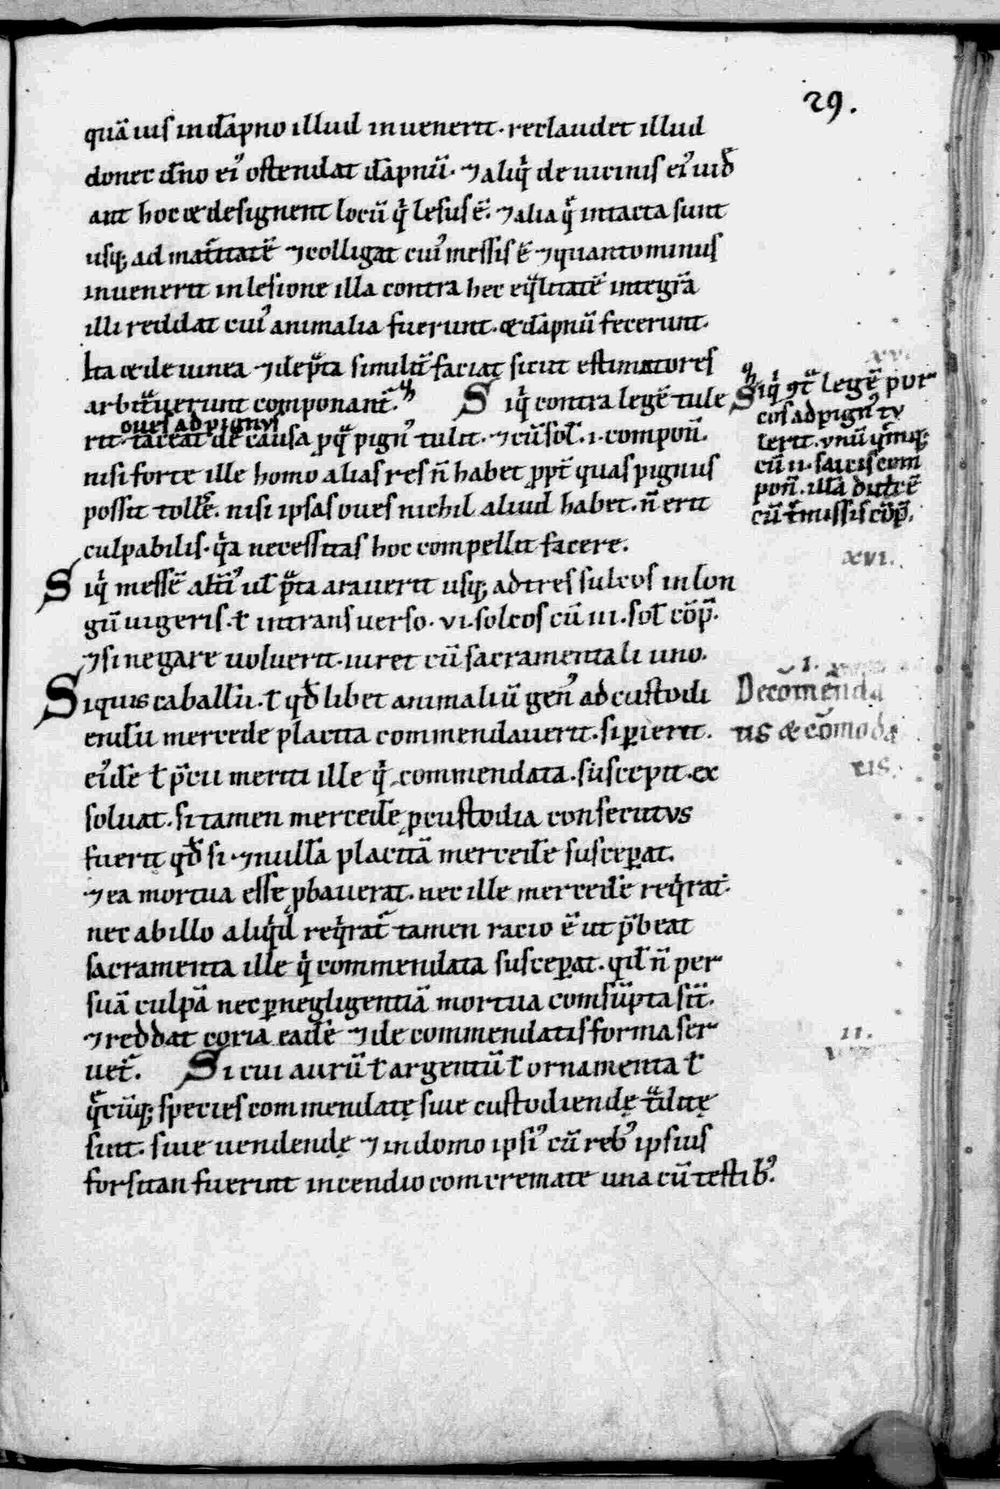 29.
quā uis in dāpno illud inuenerit. reclaudet illud
donec dn̄o eiꝰ ostendat dāpnū. ⁊ aliq̇ de uicinis eiꝰ uid̄
ant hoc & designent locū q̇ lesus ē. ⁊ alia q̄ intacta sunt
usq; ad mat̄itatē ⁊ colligat cuiꝰ messis ē ⁊ quanto minus
inuenerit in lesione illa contra hec eq̄litatē integrā
illi reddat cuiꝰ animalia fuerunt. & dāpnū fecerunt.
Ita & de uinea ⁊ de p̄ta similit̄ faciat sicut estimatores
arbit̄uerunt componant̄. S iq̇ contra legē tule
oues ad pignus
rit. taceat de causa p̱q̄ pignꝰ tulit. ⁊ cū sol̄. i. compon̄.
nisi forte ille homo alias res n̄ habet p̱pt̄ quas pignus
possit toll̄e. nisi ipsas oues nichil aliud habet. n̄ erit
culpabilis. q̄a necessitas hoc compellit facere.
Siq̇ messē alt̄iꝰ ul̄ p̄ta arauerit usq; ad tres sulcos in lon
gū uigeris. ł in transuerso. vi. solcos cū iii. sol̄ cōp̄.
⁊ si negare uoluerit. iuret cū sacramentali uno.
Siquis caballū. ł qd̄libet animaliū genꝰ ad custodi
endū mercede placita commendauerit. si ꝑierit.
eiꝰdē ł p̄cii meriti ille q̇ commendata suscepit. ex
soluat. si tamen mercedē ꝓ custodia consecutus
fuerit qd̄ si. ⁊ nullā placitā mercedē susceꝑat.
⁊ ea mortua esse ꝓbauerat. nec ille mercedē req̇rat.
nec ab illo aliq̇d req̇rat̄ tamen racio ē ut p̄beat
sacramenta ille q̇ commendata susceꝑat. qd̄ n̄ per
suā culpā nec ꝑ negligentiā mortua comsūpta sīt.
⁊ reddat coria eadē ⁊ de commendatis forma ser
uet̄. Si cui aurū ł argentū ł ornamenta ł
q̄cūq; species commendatę siue custodiendę t̄ditę
sunt. siue uendendę ⁊ in domo ipsiꝰ cū rebꝰ ipsius
forsitan fuerint incendio comcremate una cū testibꝰ.
Siq̇ 9t̄ legē por
cos ad pignꝰ tu
lerit. unū q̇nq;
cū ii. sacris com
pon̄.
xvi.
De comenda
tis & cōmoda
tis.
ii.